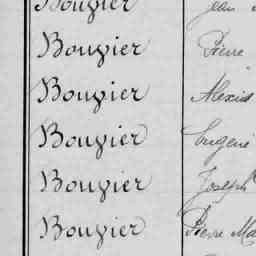 Bouvier Jean
Bouvier Pierre
Bouvier Alexis
Bouvier Eugène
Bouvier Joseph
Bouvier Pierre Ma